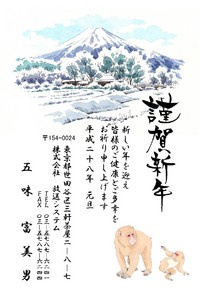 謹賀新年
新しい年を迎え
皆様のご健康とご多幸を
お祈り申し上げます
平成二十八年 元旦
〒154-0024
東京都世田谷区三軒茶屋二-八-七
株式会社 放送システム
五味 富美男